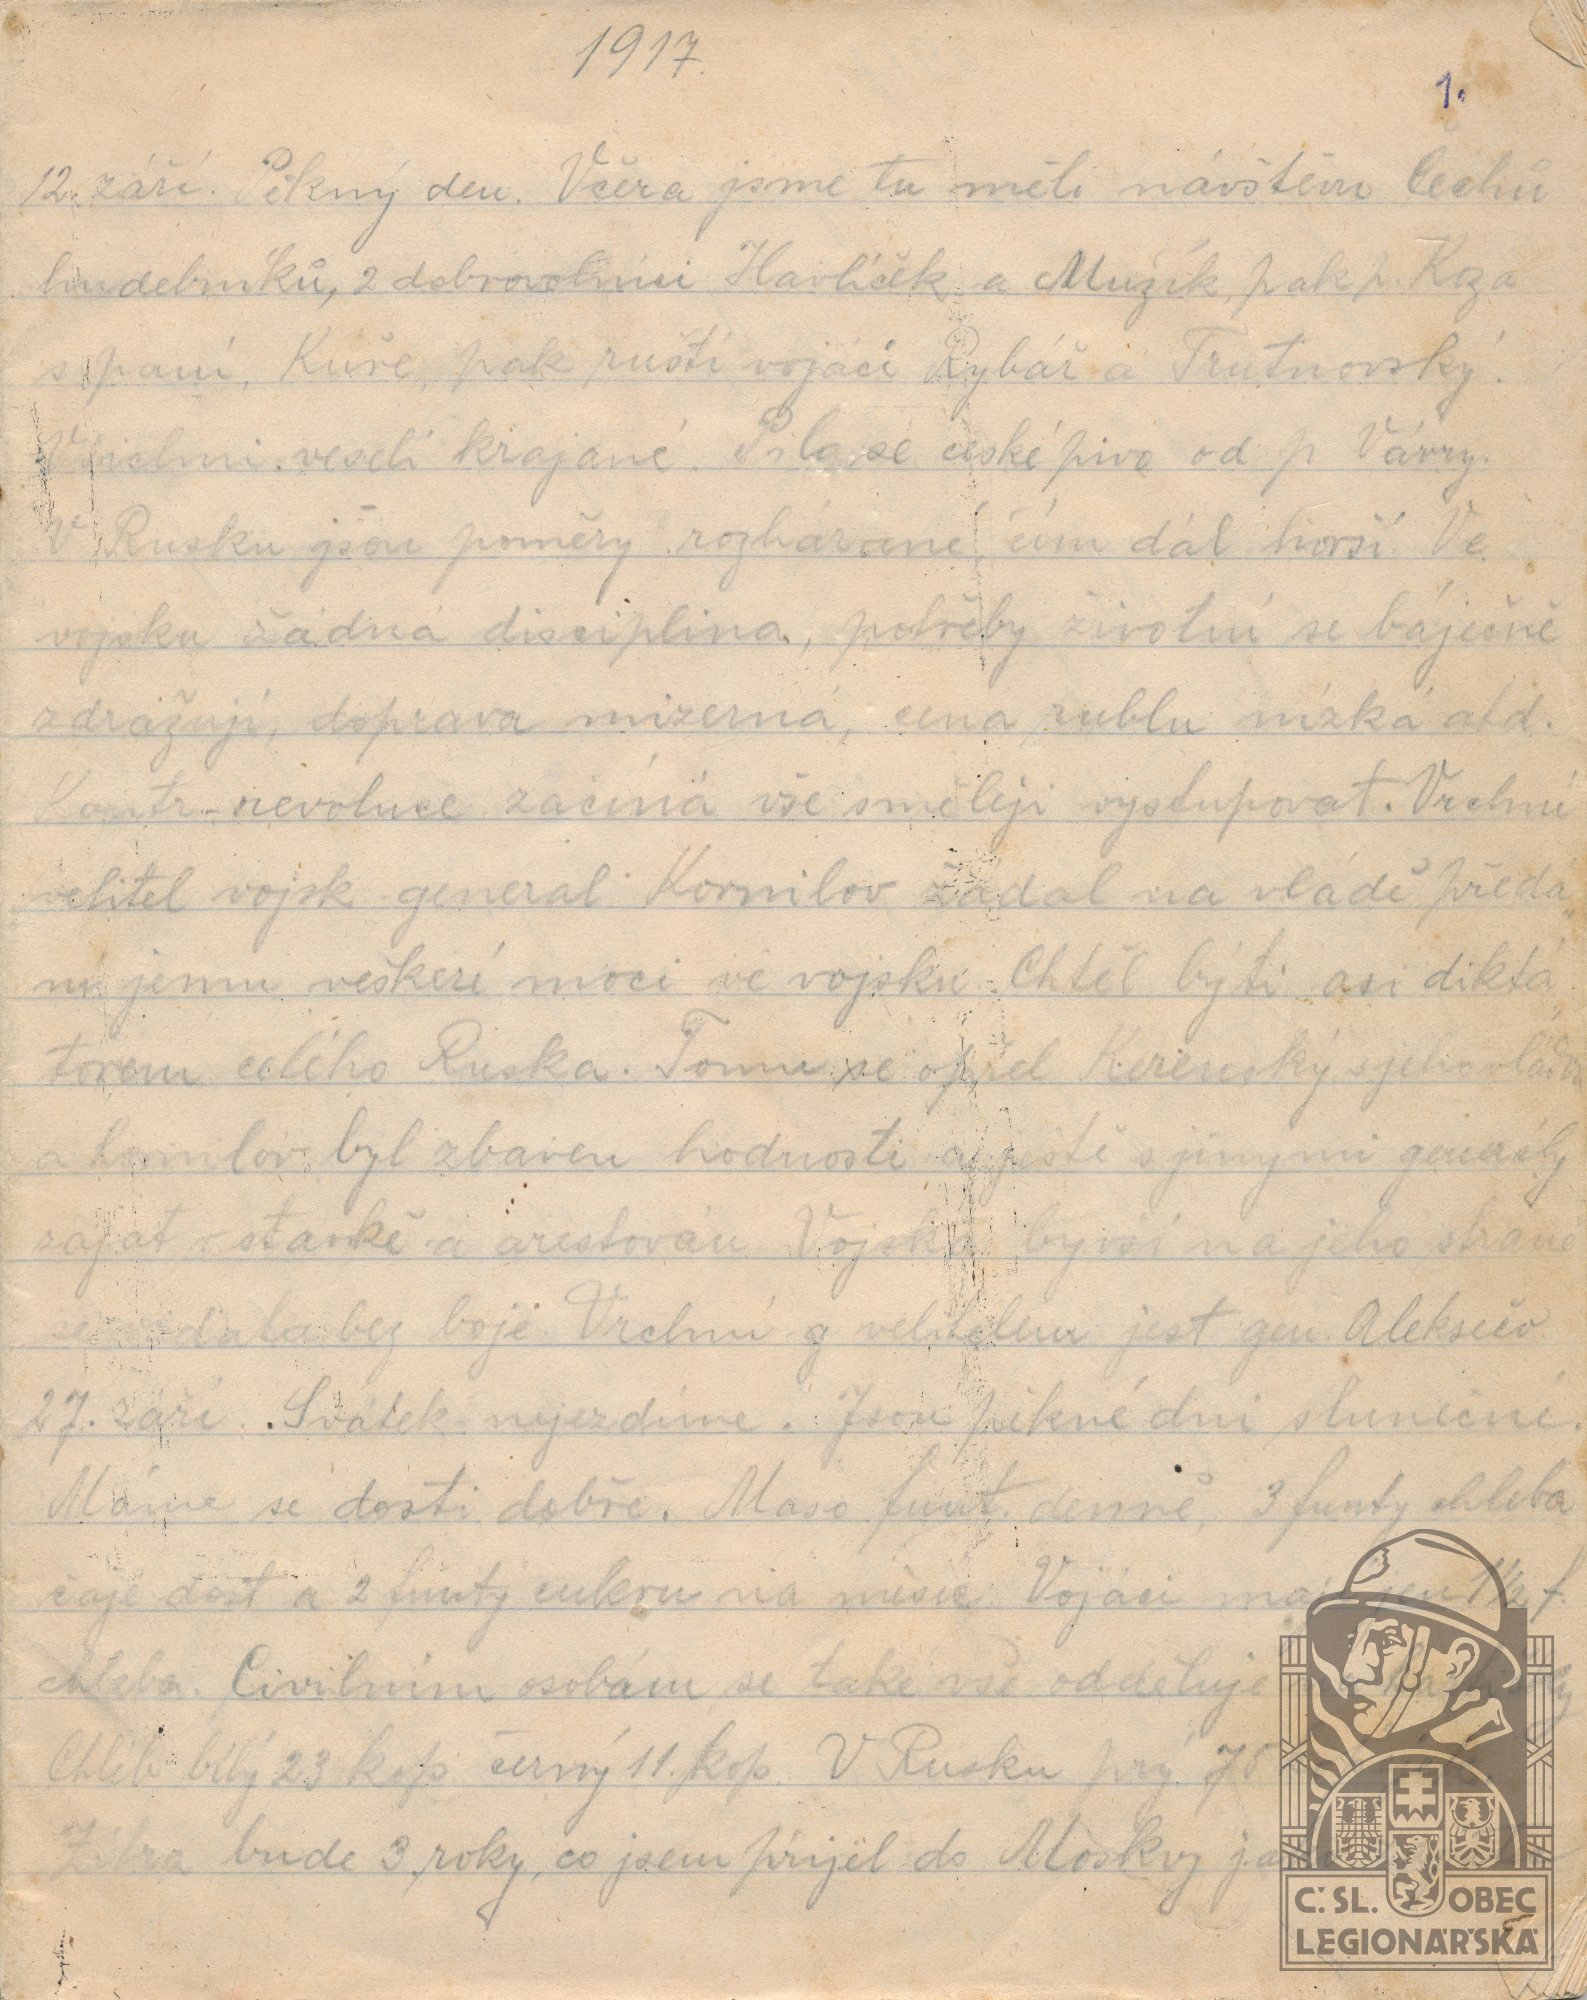 1917.
1.
12. září. Pěkný den. Včera jsme tu měli návštěvu Čechů
hudebníků, 2 dobrovolníci Havlíček a Muzík, pak p. Koza
s paní, Kuře, pak ruští vojáci Rybář a Trutnovský.
Všichni veselí krajané. Pilo se české pivo od p. Vávry.
V Rusku jsou poměry rozhárané, čím dál horší. Ve
vojsku žádná disciplina, potřeby životní se báječně
zdražují, doprava mizerná, cena rublu nízká atd.
Kontr-revoluce začíná vše směleji vystupovat. Vrchní
velitel vojsk general Kornilov žádal na vládě předá
ní jemu veškeré moci ve vojsku. Chtěl býti asi diktá
torem celého Ruska. Tomu se opřel Kerenský s jeho vládou
a Kornilov byl zbaven hodnosti a ještě s jinými generály
zajat v stavkě a arestován. Vojska byvší na jeho straně
se vzdala bez boje. Vrchní velitelem jest gen. Aleksěév
27. září. Svátek nejezdíme. Jsou pěkné dni slunečné.
Máme se dosti dobře. Maso funt. denně, 3 funty chleba
čaje dost a 2 funty cukru na měsíc. Vojáci mají jen 1½ f.
chleba. Civilním osobám se také vše odděluje
Chléb bílý 23 kop. černý 11. kop. V Rusku prý
Zítra bude 3 roky, co jsem přijel do Moskvy
Č. SL. OBEC
LEGIONÁŘSKÁ